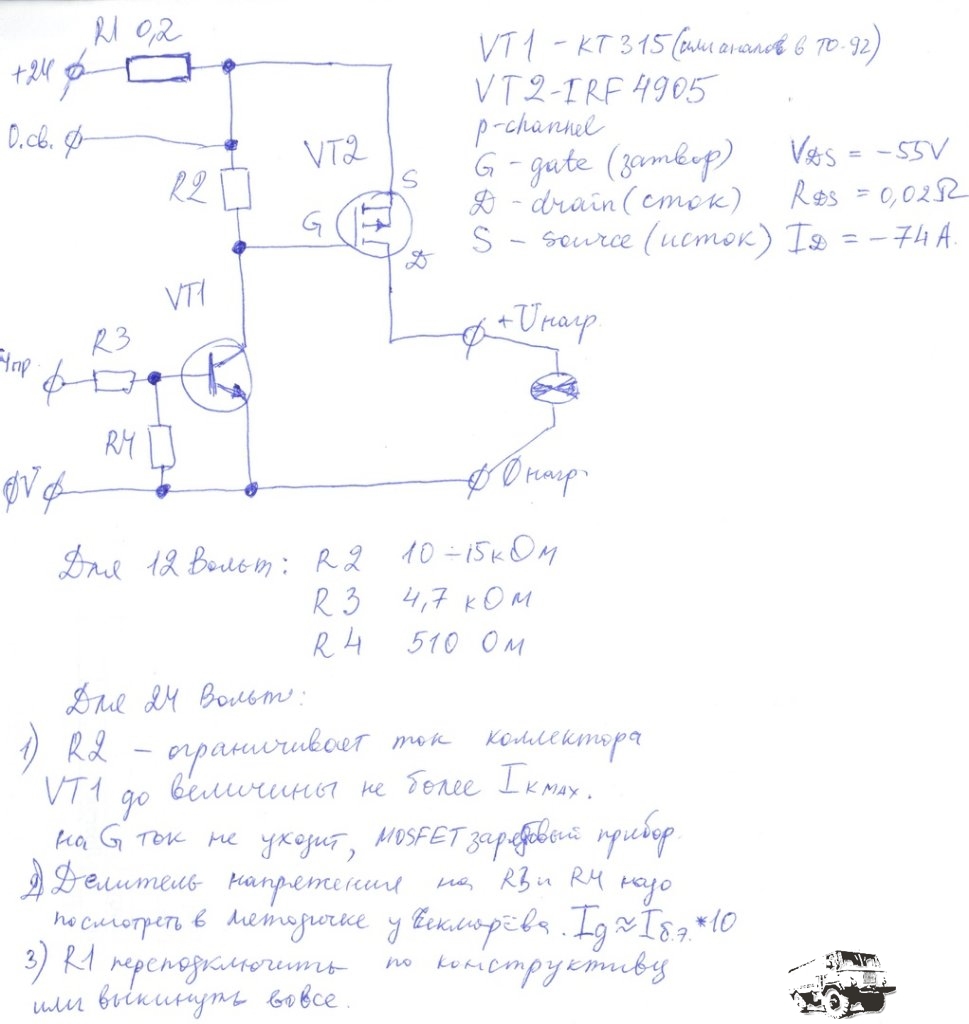 R1 0,2
+24
О.св.
R2
VT2
S
G
D
VT1
R3
R4
ØV
+Uнагр.
0нагр.
VT1 - КТ315 (или аналог в ТО-92)
VT2 - IRF4905
p-channel
G - gate (затвор) VDS = -55V
D - drain (сток) RDS = 0,02Ω
S - source (исток) ID = -74A.
Для 12 Вольт: R2 10÷15кОм
R3 4,7 кОм
R4 510 Ом
Для 24 Вольт:
1) R2 - ограничивает ток коллектора
VT1 до величины не более Iк MAX.
на G ток не уходит, MOSFET зарядовый прибор.
2) Делитель напряжения на R3 и R4 надо
посмотреть в методичке у Чекмарёва. Iд ≈ Iб.э. *10
3) R1 переподключить по конструктиву
или выкинуть вовсе.